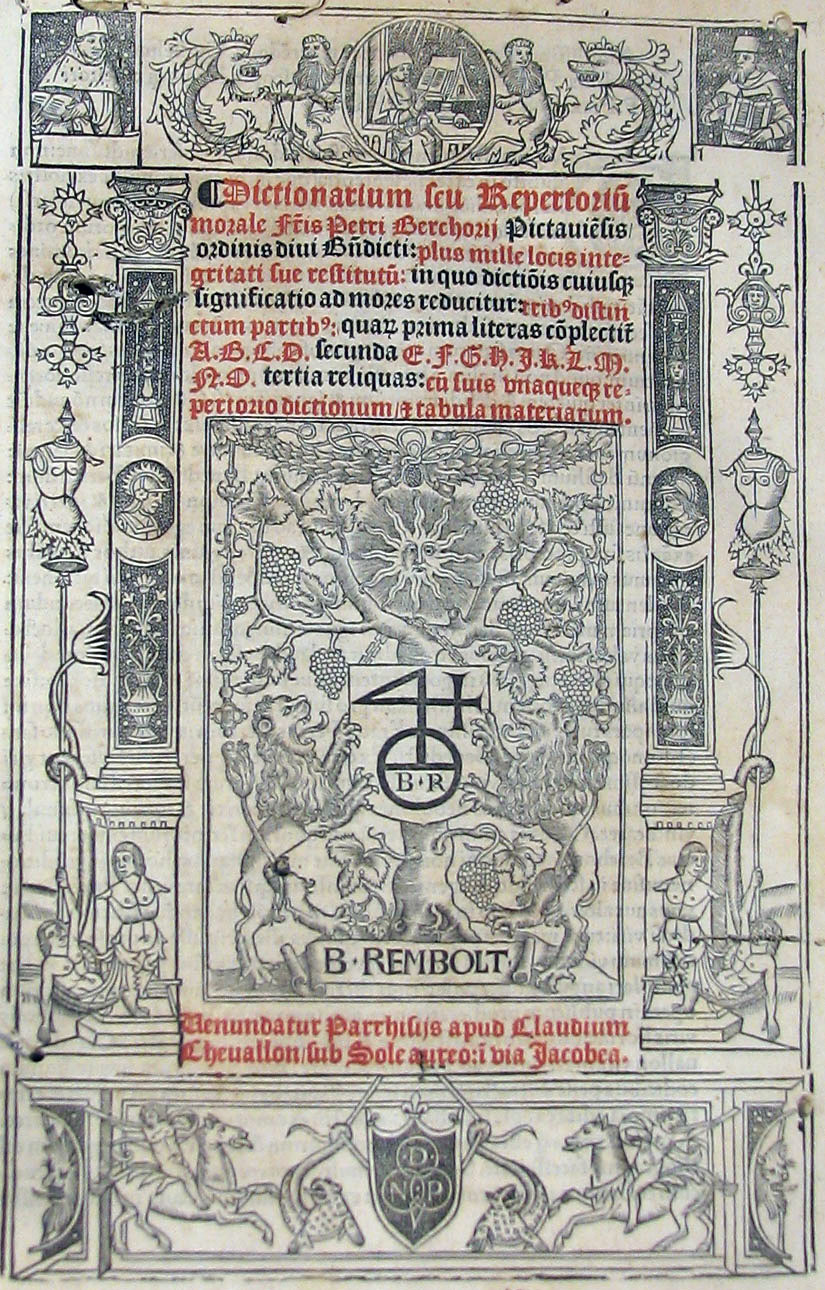 Dictionarium seu Repertoriū
morale Fr̄is Petri Berchorij Pictauiēsis/
ordinis diui Bn̄dicti: plus mille locis inte-
gritati sue restitutū: in quo dictiōis cuiusqꝫ
significatio ad mores reducitur: tribꝰ distin
ctum partibꝰ: quaꝝ prima literas cōplectit̄
A.B.C.D. secunda E.F.G.H.J.K.L.M.
N.O. tertia reliquas: cū suis vnaqueqꝫ re-
pertorio dictionum/ ⁊ tabula materiarum.
4
B·R
B·REMBOLT
Uenundatur Parrhisijs apud Claudium
Cheuallon/ sub Sole aureo: ī via Jacobea.
D
N P